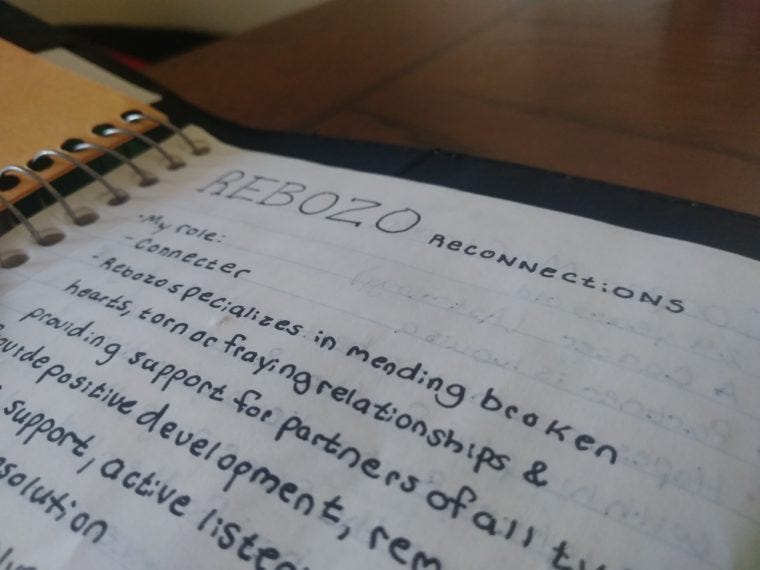 REBOZO RECONNECTIONS
-My role:
- Connecter
- Rebozo specializes in mending broken
hearts, torn or fraying relationships &
providing support for partners of all
positive development,
support, active